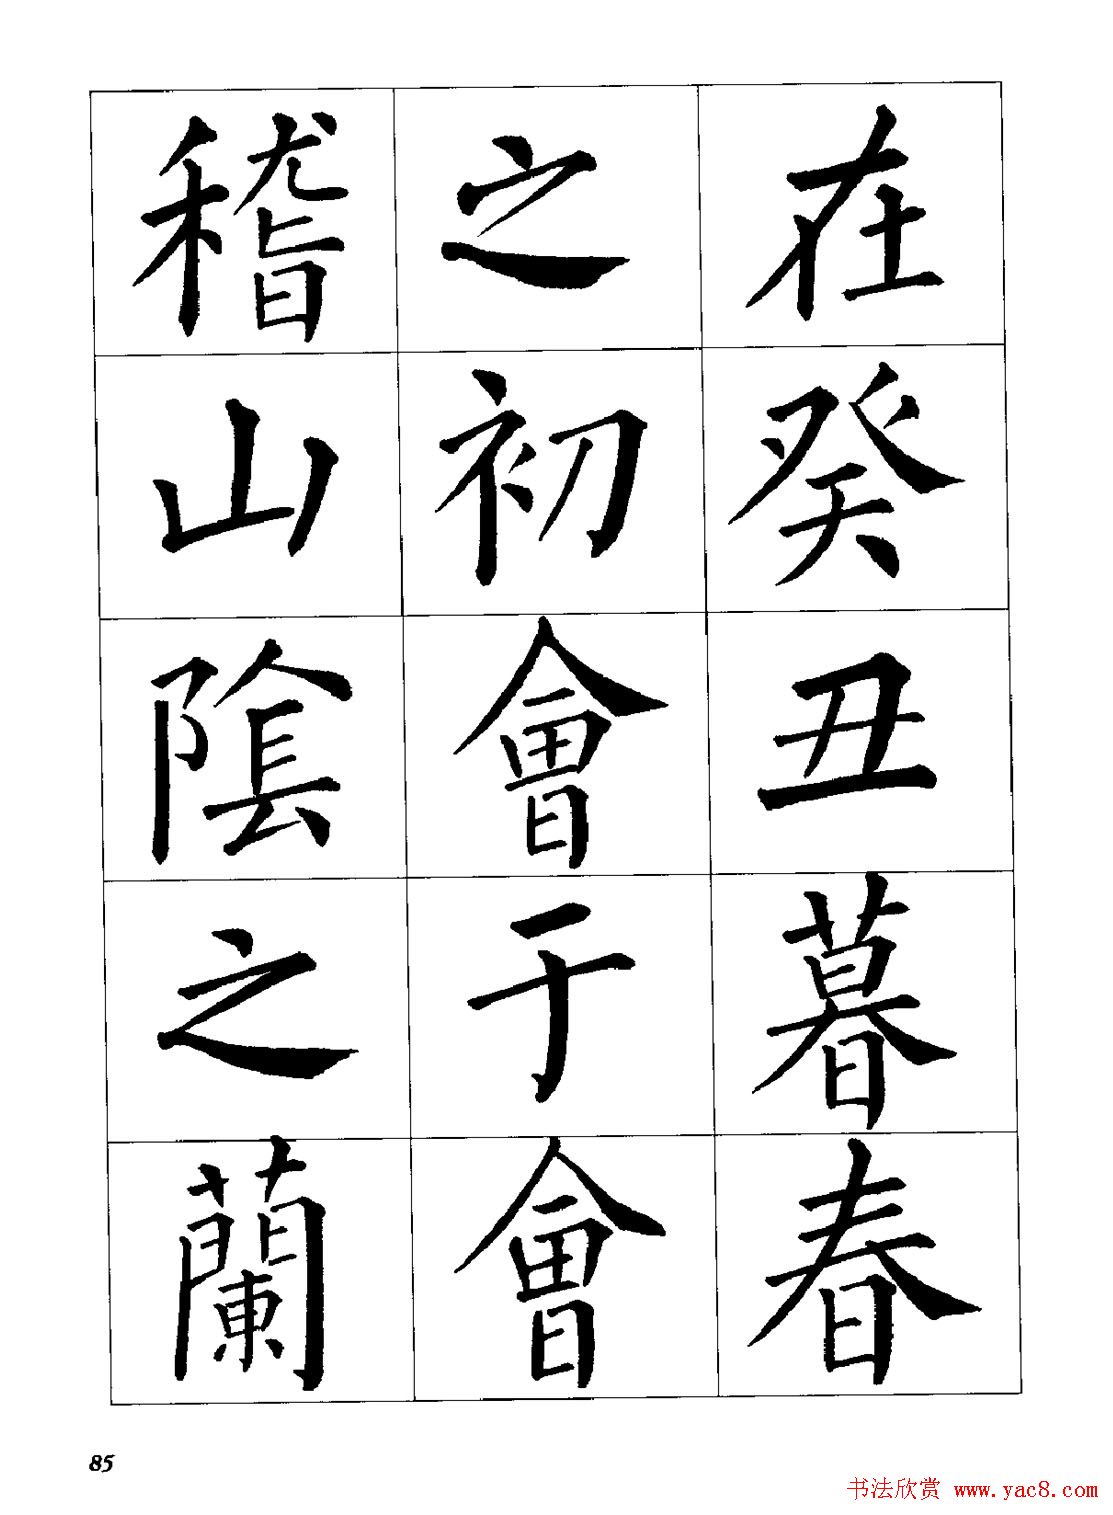 在癸丑暮春
之初會于會
稽山陰之蘭
85
书法欣赏 www.yac8.com